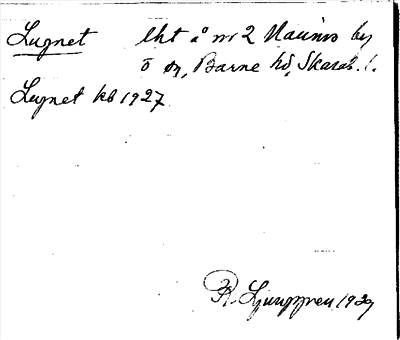 Lugnet lht å nr 2 Naunös by
Ö sn, Barne hd, Skarab. l.
Lugnet kb 1927
R. Ljunggren 1929